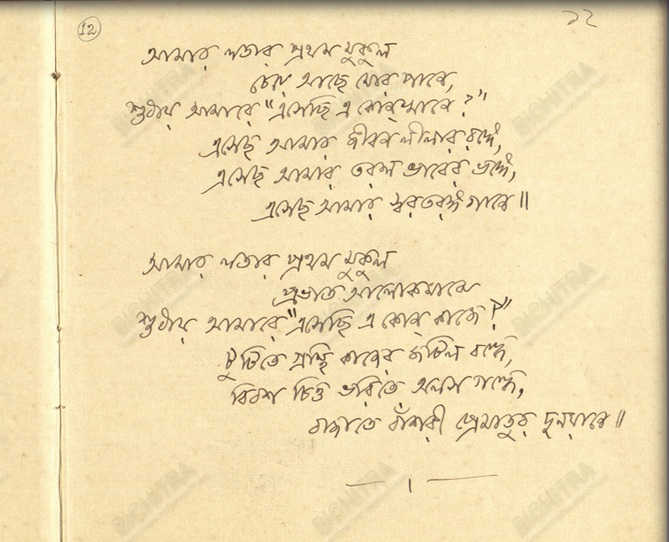 12
১২
আমার লতার প্রথম মুকুল
চেয়ে আছে মোর পানে,
শুধায় আমারে "এসেছি এ কোন্‌খানে?"
এসেছ আমার জীবন লীলার রঙ্গে,
এসেছ আমার তরল ভাবের ভঙ্গে,
এসেছ আমার স্বরতরঙ্গ গানে॥
আমার লতার প্রথম মুকুল
প্রভাত আলোকমাঝে
শুধায় আমারে "এসেছি এ কোন্ কাজে?"
টুটিতে গ্রন্থি কাজের জটিল বন্ধে,
বিবশ চিত্ত ভরিতে অলস গন্ধে,
বাজাতে বাঁশরী প্রেমাতুর দুনয়ানে॥
BICHITRA